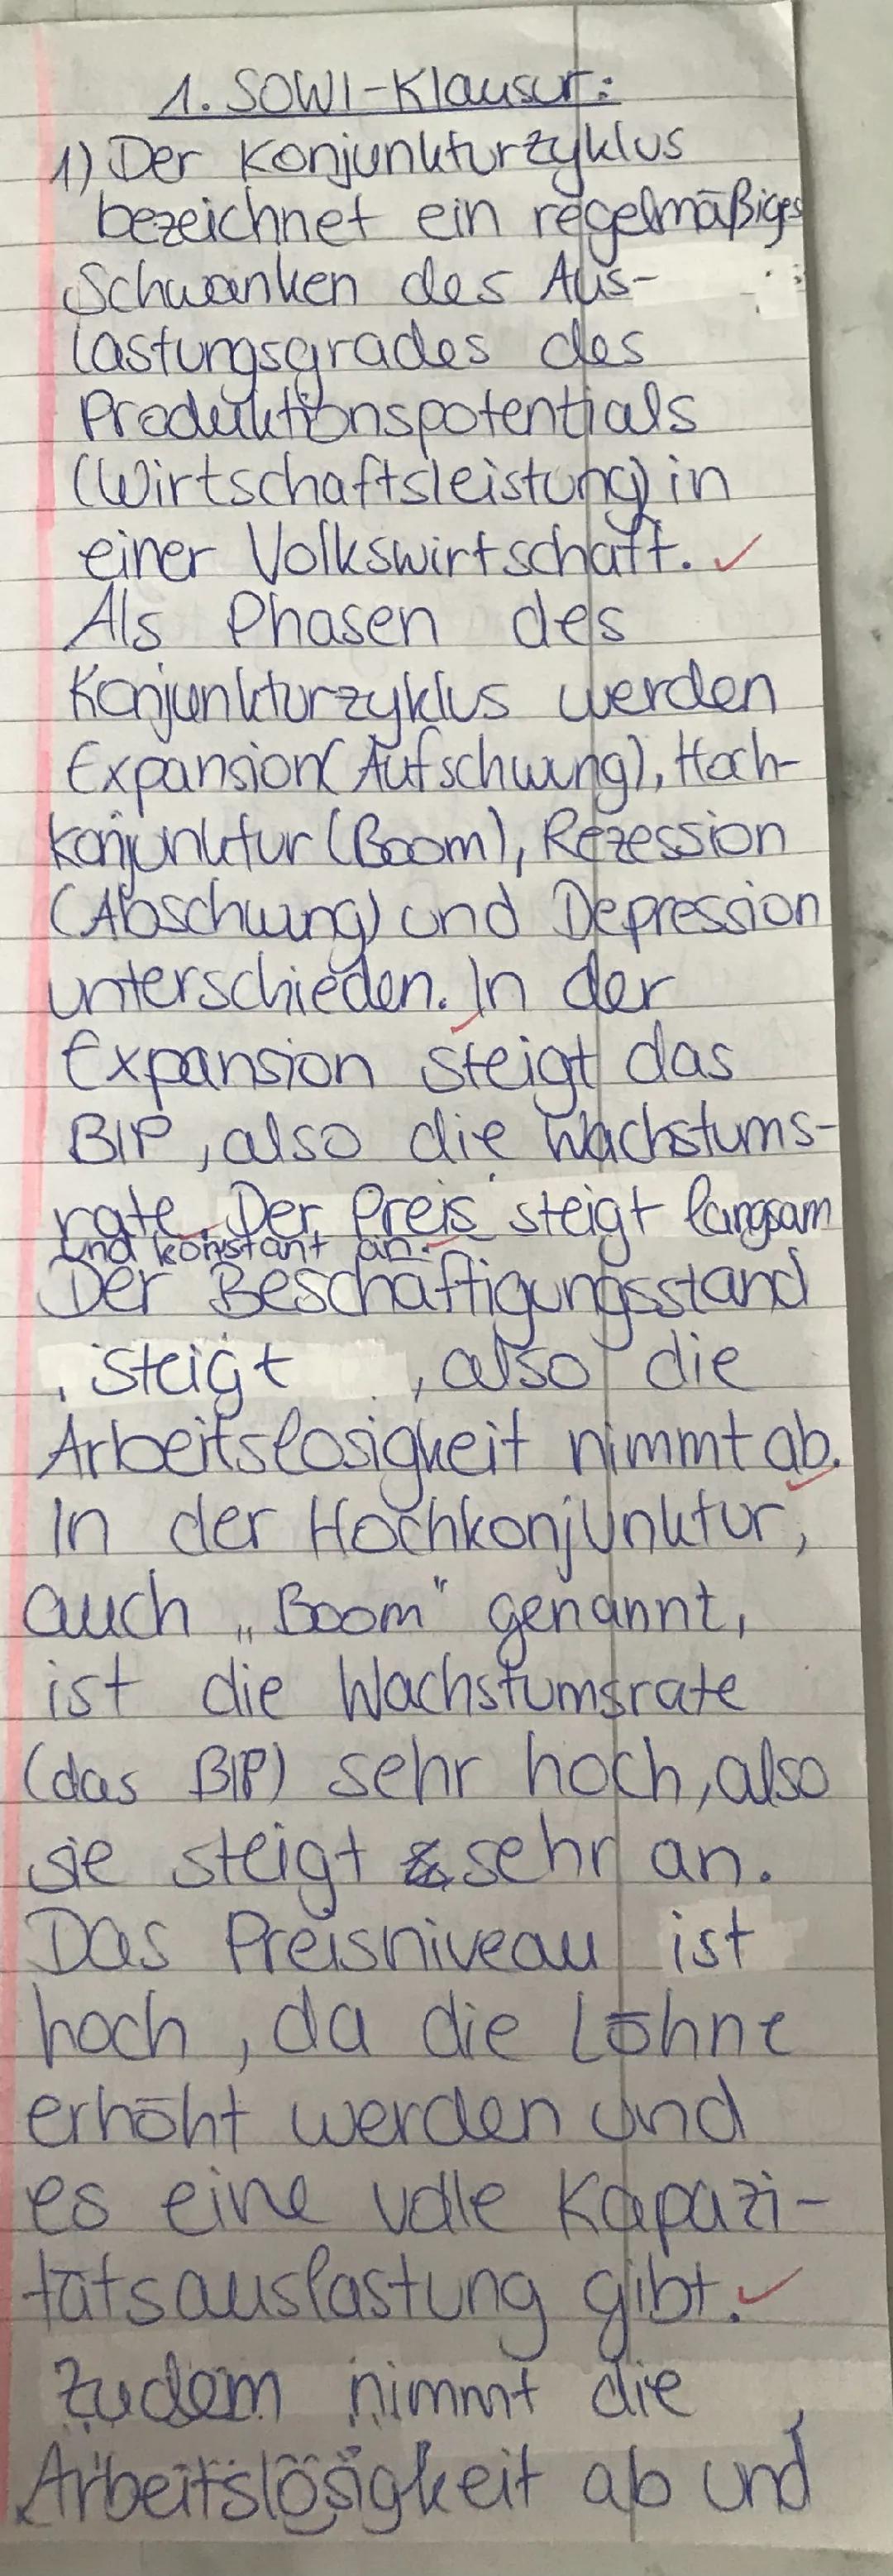 1. SOWI-Klausur:
1) Der Konjunkturzyklus
bezeichnet ein regelmäßiges
Schwanken des Aus-
lastungsgrades des
Produktionspotentials
(Wirtschaftsleistung) in
einer Volkswirtschaft.
Als Phasen des
Konjunkturzyklus werden
Expansion (Aufschwung), Hoch-
konjunktur (Boom), Rezession
(Abschwung) und Depression
unterschieden. In der
Expansion steigt das
BIP, also die Wachstums-
rate. Der Preis steigt langsam
und konstant an.
Der Beschäftigungsstand
steigt, also die
Arbeitslosigkeit nimmt ab.
In der Hochkonjunktur,
auch „Boom" genannt,
ist die Wachstumsrate
(das BIP) sehr hoch, also
sie steigt sehr an.
Das Preisniveau ist
hoch, da die Löhne
erhöht werden und
es eine volle Kapazi-
tätsauslastung gibt.
Zudem nimmt die
Arbeitslosigkeit ab und